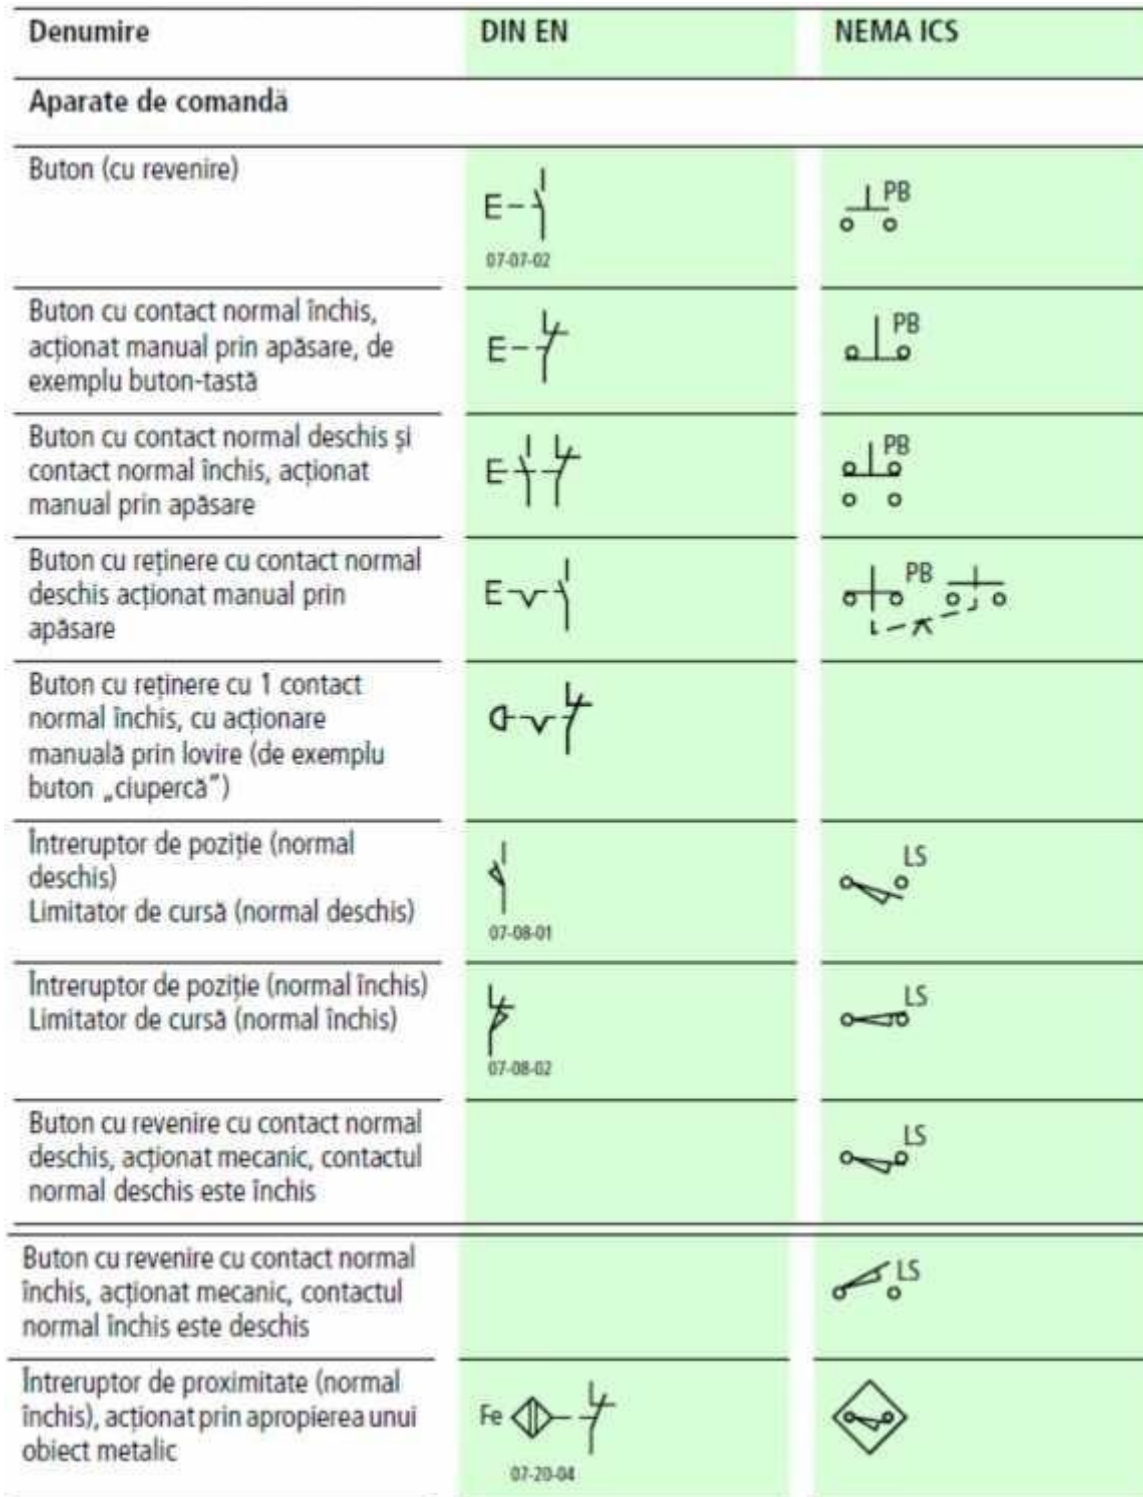 Denumire DIN EN NEMA ICS
Aparate de comandă
Buton (cu revenire)
E
07-07-02
PB
Buton cu contact normal închis,
acționat manual prin apăsare, de
exemplu buton-tastă
E
PB
Buton cu contact normal deschis și
contact normal închis, acționat
manual prin apăsare
E
PB
Buton cu reținere cu contact normal
deschis acționat manual prin
apăsare
E
PB
Buton cu reținere cu 1 contact
normal închis, cu acționare
manuală prin lovire (de exemplu
buton „ciupercă”)
Întreruptor de poziție (normal
deschis)
Limitator de cursă (normal deschis)
07-08-01
LS
Întreruptor de poziție (normal închis)
Limitator de cursă (normal închis)
07-08-02
LS
Buton cu revenire cu contact normal
deschis, acționat mecanic, contactul
normal deschis este închis
LS
Buton cu revenire cu contact normal
închis, acționat mecanic, contactul
normal închis este deschis
LS
Întreruptor de proximitate (normal
închis), acționat prin apropierea unui
obiect metalic
Fe
07-20-04